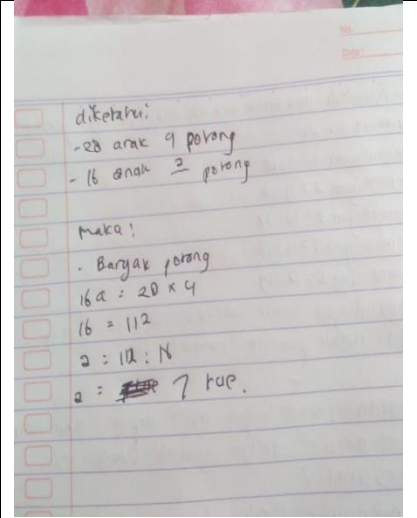 No.
Date:
diketahui:
- 28 anak 4 potong
- 16 anak a potong
maka:
. Banyak potong
16a = 28 x 4
16 = 112
a = 112 : 16
a = 7 kue.